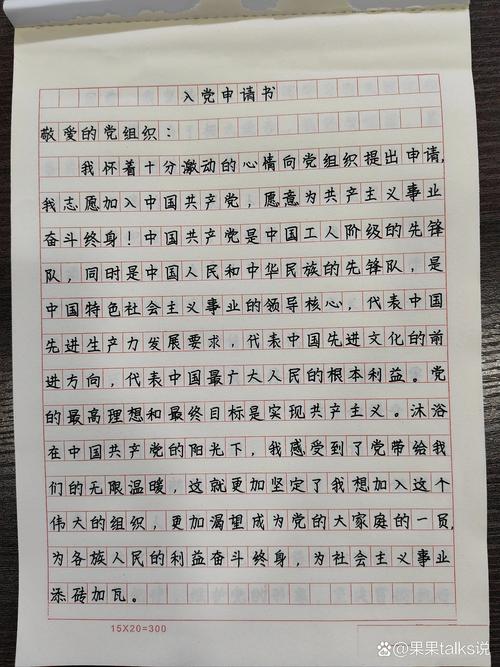 入党申请书
敬爱的党组织：
我怀着十分激动的心情向党组织提出申请,
我志愿加入中国共产党，愿意为共产主义事业
奋斗终身！中国共产党是中国工人阶级的先锋
队，同时是中国人民和中华民族的先锋队，是
中国特色社会主义事业的领导核心，代表中国
先进生产力发展要求，代表中国先进文化的前
进方向，代表中国最广大人民的根本利益。党
的最高理想和最终目标是实现共产主义。沐浴
在中国共产党的阳光下，我感受到了党带给我
们的无限温暖，这就更加坚定了我想加入这个
伟大的组织，更加渴望成为党的大家庭的一员,
为各族人民的利益奋斗终身，为社会主义事业
添砖加瓦。
15X20=300
果果talks说